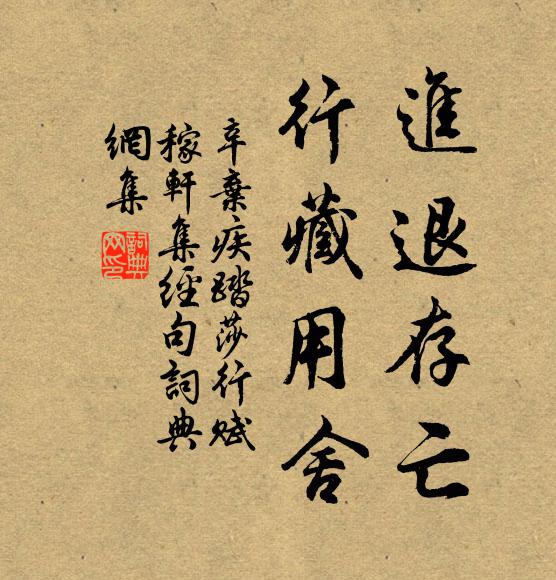 進退存亡
行藏用舍
辛棄疾踏莎行賦
稼軒集經句詞典
網集
詞典
网印